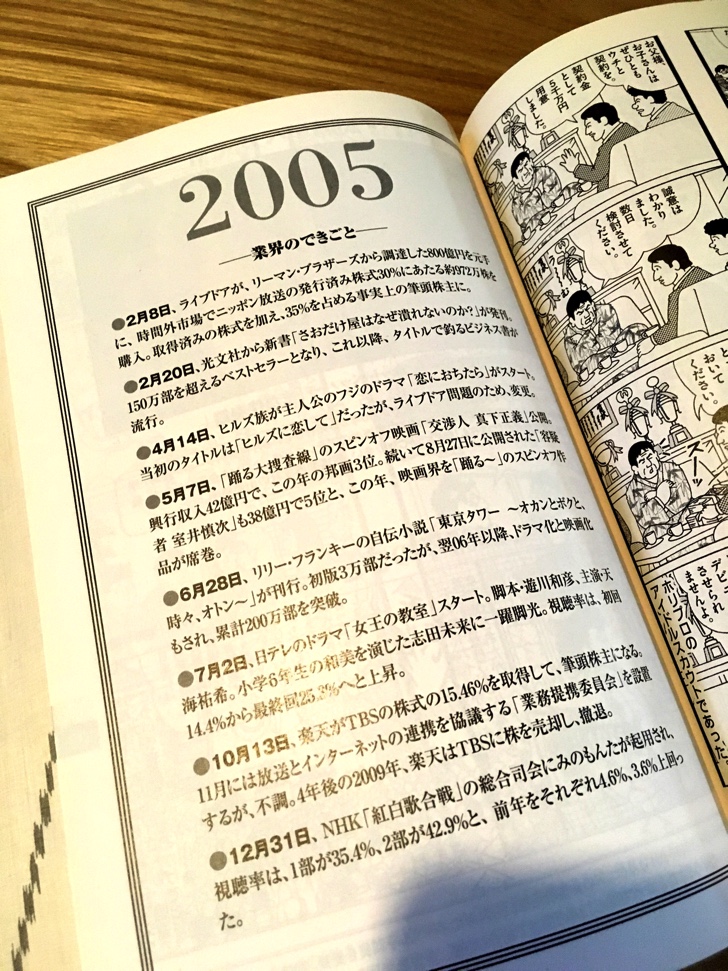 2005
業界のできごと
●2月8日、ライブドアが、リーマン・ブラザーズから調達した800億円を元手
に、時間外市場でニッポン放送の発行済み株式30%にあたる約972万株を
購入。取得済みの株式を加え、35%を占める事実上の筆頭株主に。
●2月20日、光文社から新書「さおだけ屋はなぜ潰れないのか?」が発刊。
150万部を超えるベストセラーとなり、これ以降、タイトルで釣るビジネス書が
流行。
●4月14日、ヒルズ族が主人公のフジのドラマ「恋におちたら」がスタート。
当初のタイトルは「ヒルズに恋して」だったが、ライブドア問題のため、変更。
●5月7日、「踊る大捜査線」のスピンオフ映画「交渉人 真下正義」公開。
興行収入42億円で、この年の邦画3位。続いて8月27日に公開された「容疑
者 室井慎次」も38億円で5位と、この年、映画界を「踊る〜」のスピンオフ作
品が席巻。
●6月28日、リリー・フランキーの自伝小説「東京タワー 〜オカンとボクと、
時々、オトン〜」が刊行。初版3万部だったが、翌06年以降、ドラマ化と映画化
もされ、累計200万部を突破。
●7月2日、日テレのドラマ「女王の教室」スタート。脚本・遊川和彦、主演・天
海祐希。小学6年生の和美を演じた志田未来に一躍脚光。視聴率は、初回
14.4%から最終回25.3%へと上昇。
●10月13日、楽天がTBSの株式の15.46%を取得して、筆頭株主になる。
11月には放送とインターネットの連携を協議する「業務提携委員会」を設置
するが、不調。4年後の2009年、楽天はTBSに株を売却し、撤退。
●12月31日、NHK「紅白歌合戦」の総合司会にみのもんたが起用され、
視聴率は、1部が35.4%、2部が42.9%と、前年をそれぞれ4.6%、3.6%上回っ
た。
お父様、
お子さんは
ぜひとも
ウチと
契約を。
契約金
として
5千万円
用意
しました。
誠意は
わかり
ました。
数日
検討させて
ください。
スーッ
させられ
ませんよ。
ホリプロの
アイドルスカウトであった。